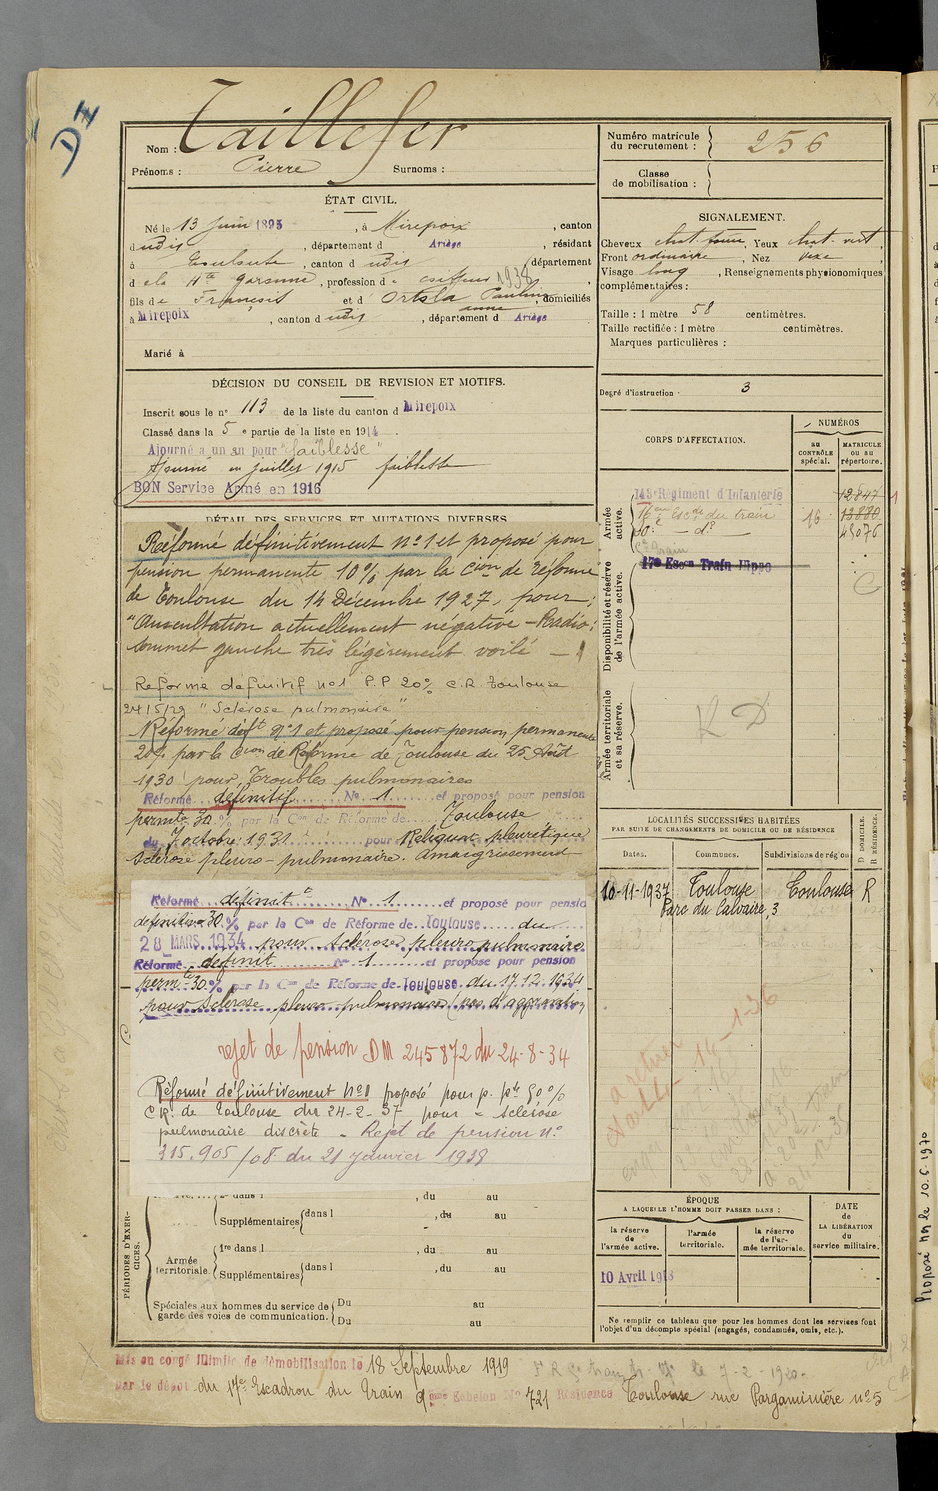 D I
Nom : Taillefer
Prénoms : Pierre Surnoms :
ÉTAT CIVIL.
Né le 13 juin 1895, à Mirepoix, canton
dudis, département d Ariège, résidant
à Toulouse, canton d udis, département
d ela Hte Garonne, profession de coiffeur 1938
fils de François et d' Ortola Pauline
anne, domiciliés
à Mirepoix, canton d udis, département d Ariège
Marié à
DÉCISION DU CONSEIL DE REVISION ET MOTIFS.
Inscrit sous le n° 113 de la liste du canton d Mirepoix
Classé dans la 5e partie de la liste en 1914.
Ajourné a un an pour "faiblesse"
Ajourné en juillet 1915 faiblesse
BON Service Armé en 1916
DÉTAIL DES SERVICES ET MUTATIONS DIVERSES
Réformé définitivement n°1 et proposé pour
pension permanente 10% par la Cion de réforme
de Toulouse du 14 Décembre 1927, pour:
"Auscultation actuellement négative - Radio:
sommet gauche très légèrement voilé -
Reforme definitif no1 P.P 20% C.R Toulouse
24/5/29 "Sclérose pulmonaire"
Réformé déft n°1 et proposé pour pension permanente
20% par la Cion de Réforme de Toulouse du 25 Août
1930 pour Troubles pulmonaires
Réformé définitif N° 1 et proposé pour pension
permte 30 % par la Con de Réforme de Toulouse
du 7 octobre 1931 pour Reliquat pleurétique
Sclérose pleuro-pulmonaire. Amaigrissement
Réformé définit N° 1 et proposé pour pensio
definitive 30 % par la Con de Réforme de Toulouse du
28 MARS 1934 pour sclérose pleuro pulmonaire
Réformé définit N° 1 et proposé pour pension
permte 30 % par la Con de Réforme de Toulouse du 17.12.1934
pour sclérose pleuro pulmonaire (pas d'aggravation
rejet de pension DM 245872 du 24-8-34
Réformé définitivement n°1 proposé pour p. pte 50%
CR. de Toulouse du 24-2-37 pour - sclérose
pulmonaire discrète - Rejet de pension n°
315.905/08 du 21 janvier 1938
PÉRIODES D'EXERCICES.
2e dans l , du au
Supplémentaires dans l , du au
Armée territoriale.
1re dans l , du au
Supplémentaires dans l , du au
Spéciales aux hommes du service de garde des voies de communication.
Du au
Du au
Mis en congé illimité de démobilisation le 18 Septembre 1919
par le dépôt du 17e Escadron du Train 9ème Echelon N° 721 Résidence Toulouse rue Pargaminière n° 5
Numéro matricule
du recrutement : 256
Classe
de mobilisation :
SIGNALEMENT.
Cheveux chat. foncé, Yeux chat. vert,
Front ordinaire, Nez vexe,
Visage long, Renseignements physionomiques
complémentaires :
Taille : 1 mètre 58 centimètres.
Taille rectifiée : 1 mètre centimètres.
Marques particulières :
Degré d'instruction : 3
CORPS D'AFFECTATION.
NUMÉROS
au CONTRÔLE spécial.
MATRICULE ou au répertoire.
Armée active.
143e Régiment d'Infanterie 12847
16eme Escon du train 16 13880
- d° - 45076
17e Escon Train Hippo
Disponibilité et réserve de l'armée active.
Armée territoriale et sa réserve.
R D
LOCALITÉS SUCCESSIVES HABITÉES
PAR SUITE DE CHANGEMENTS DE DOMICILE OU DE RÉSIDENCE
Dates. Communes. Subdivisions de région
D DOMICILE. R RÉSIDENCE.
10-11-1937 Toulouse Toulouse R
Parc du Calvaire, 3
ÉPOQUE
A LAQUELLE L'HOMME DOIT PASSER DANS :
la réserve de l'armée active.
l'armée territoriale.
la réserve de l'armée territoriale.
DATE DE LA LIBÉRATION du service militaire.
10 Avril 1918
Ne remplir ce tableau que pour les hommes dont les services font
l'objet d'un décompte spécial (engagés, condamnés, omis, etc.).
Proposé le 10.6.1970